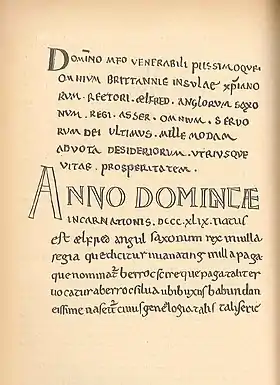 DOMINO MEO VENERABILI PIISSIMOQUE
OMNIUM BRITTANNIE INSULAE XPIANO
RUM. RECTORI. ÆLFRED. ANGLORUM SAXO
NUM. REGI. ASSER. OMNIUM. SERUO
RUM DEI ULTIMUS. MILLE MODAM
ADUOTA DESIDERIORUM. UTRIUSQUE
UITAE. PROSPERITATEM.
ANNO DOMINICÆ
INCARNATIONIS. DCCC.XLIX. natus
est ælfred angul saxonum rex inuilla
regia quedicitur uuanating inilla paga
que nominat berrocscire quepagataliter
uocatur aberrocsilua ubibuxus habundan
tissime nascit cuius genelogiatalis taliserie